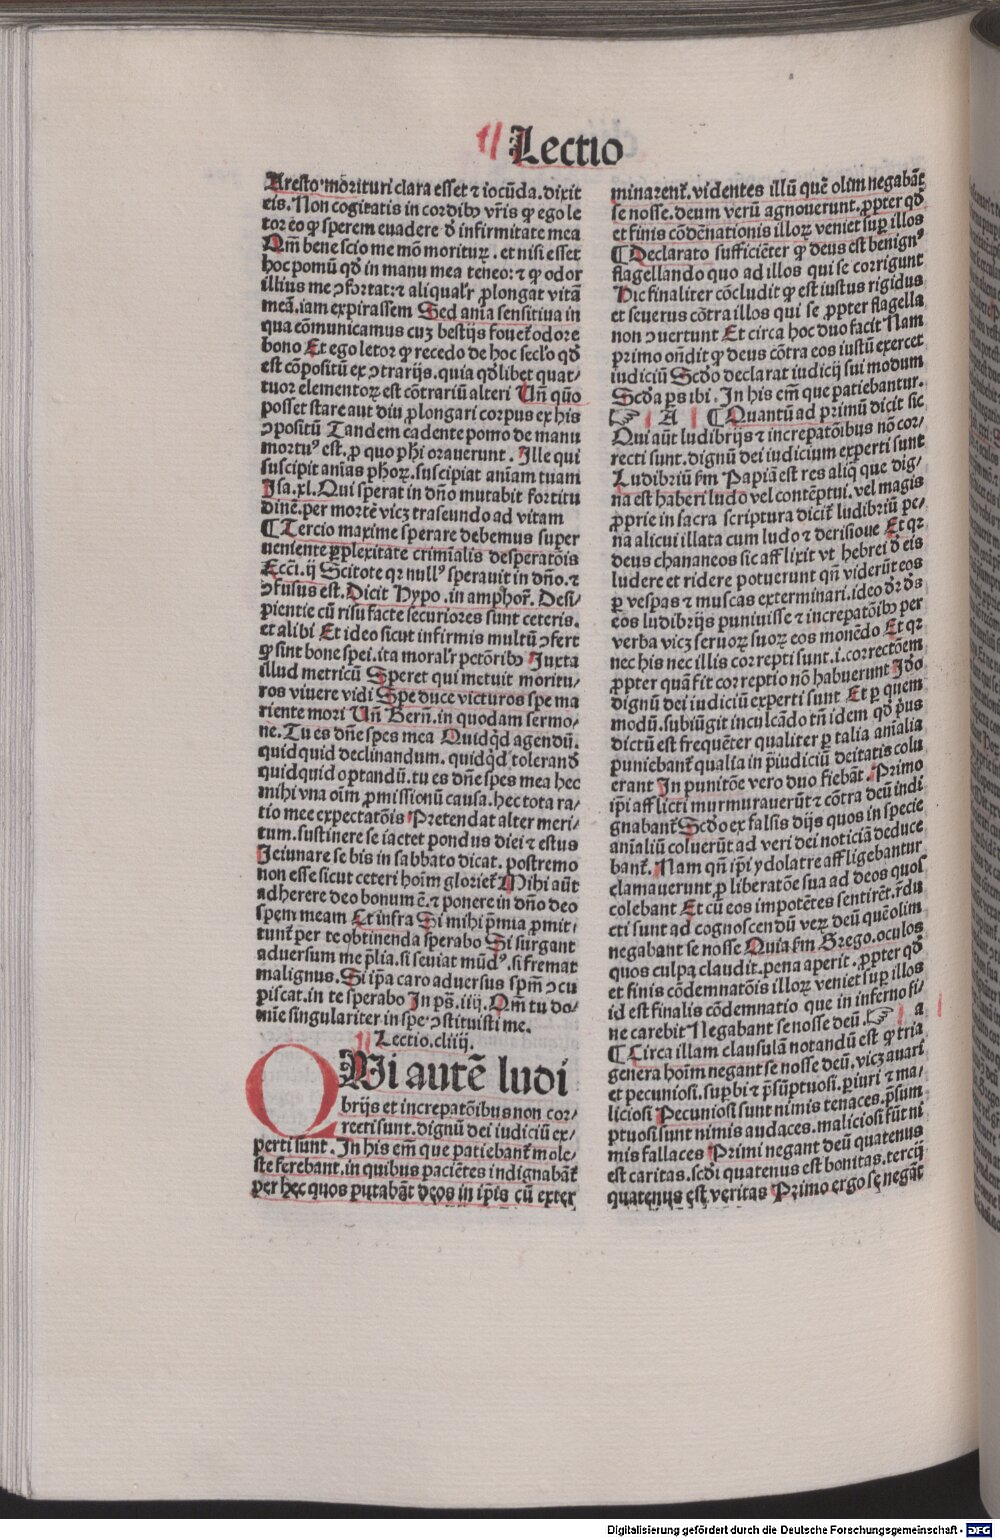 Lectio
Aresto. morituri clara esset ⁊ iocūda. dixit
eis. Non cogitatis in cordibꝰ vr̄is ꝙ ego le
tor eo ꝙ sperem euadere d̄ infirmitate mea
Qm̄ bene scio me mō moriturꝫ. et nisi esset
hoc pomū qd̄ in manu mea teneo: ⁊ ꝙ odor
illius me ↄfortat: ⁊ aliqual'r ꝓlongat vitā
meā. iam expirassem Sed aīa sensitiua in
qua cōmunicamus cuꝫ bestijs fouet̄ odore
bono Et ego letor ꝙ recedo de hoc sec̄lo qd̄
est cōpositū ex ↄtrarijs. quia qd̄libet quat/
tuor elementoꝝ est cōtrariū alteri Vn̄ quō
posset stare aut diu ꝓlongari corpus ex his
ↄpositū Tandem cadente pomo de manu
mortuꝰ est. ꝓ quo ph̄i orauerunt. Ille qui
suscipit aīas ph̄oꝝ. suscipiat aīam tuam
Isa. xl. Qui sperat in dn̄o mutabit fortitu
dinē. per mortē vicꝫ traseundo ad vitam
¶ Tercio maxime sperare debemus super
ueniente ꝑplexitate crimīalis desperatōis
Ecc̄i. ij Scitote qꝛ nullꝰ sperauit in dn̄o. ⁊
ↄfusus est. Dicit Hypo. in amphor̄. Desi/
pientie cū risu facte securiores sunt ceteris.
et alibi Et ideo sicut infirmis multū ↄfert
ꝙ sint bone spei. ita moral'r pctōribꝰ Iuxta
illud metricū Speret qui metuit moritu/
ros viuere vidi Spe duce victuros spe ma
riente mori Vn̄ Bern̄. in quodam sermo/
ne. Tu es dn̄e spes mea Quidqd̄ agendū.
quidquid declinandum. quidqd̄ tolerand̄
quidquid optandū. tu es dn̄e spes mea hec
mihi vna oīm ꝓmissionū causa. hec tota ra/
tio mee expectatōis Pretendat alter meri/
tum. sustinere se iactet pondus diei ⁊ estus
Ieiunare se bis in sabbato dicat. postremo
non esse sicut ceteri hoīm gloriet̄ Mihi aūt
adherere deo bonum ē. ⁊ ponere in dn̄o deo
spem meam Et infra Si mihi p̄mia ꝓmit/
tunt̄ per te obtinenda sperabo Si surgant
aduersum me p̄lia. si seuiat mūdꝰ. si fremat
malignus. Si ip̄a caro aduersus spm̄ ↄcu
piscat. in te sperabo In ps̄. iiij. Qm̄ tu do/
mie singulariter in spe ↄstituisti me.
Lectio. cliiij.
QVi autē ludi
brijs et increpatōibus non cor/
recti sunt. dignū dei iudiciū ex/
perti sunt. In his em̄ que patiebant̄ mole/
ste ferebant. in quibus paciētes indignabāt̄
per hec quos putabāt deos in ip̄is cū exter
minarent̄. videntes illū quē olim negabāt
se nosse. deum verū agnouerunt. ꝓpter qd̄
et finis cōdēnationis illoꝝ veniet suꝑ illos
¶ Declarato sufficiēter ꝙ deus est benignꝰ
flagellando quo ad illos qui se corrigunt
Hic finaliter cōcludit ꝙ est iustus rigidus
et seuerus cōtra illos qui se ꝓpter flagella
non ↄuertunt Et circa hoc duo facit Nam
primo on̄dit ꝙ deus cōtra eos iustū exercet
iudiciū Scd̄o declarat iudicij sui modum
Scd̄a ps ibi. In his em̄ que patiebantur.
☞ A ¶ Quantū ad primū dicit sic
Qui aūt ludibrijs ⁊ increpatōibus nō cor/
recti sunt. dignū dei iudicium experti sunt
Ludibriū ẜm Papiā est res aliq̄ que dig/
na est haberi ludo vel contēptui. vel magis
ꝓprie in sacra scriptura dicit̄ ludibriū pe/
na alicui illata cum ludo ⁊ derisione Et qꝛ
deus chananeos sic afflixit vt hebrei d̄ eis
ludere et ridere potuerunt qn̄ viderūt eos
ꝑ vespas ⁊ muscas exterminari. ideo dr̄ ds̄
eos ludibrijs puniuisse ⁊ increpatōibꝰ per
verba vicꝫ seruoꝝ suoꝝ eos monēdo Et qꝛ
nec his nec illis correpti sunt. i. correctōem
ꝓpter quā fit correptio nō habuerunt Id̄o
dignū dei iudiciū experti sunt Et ꝑ quem
modū. subiūgit inculcādo tn̄ idem qd̄ p̄us
dictū est frequēter qualiter ꝑ talia aīalia
puniebant̄ qualia in p̄iudiciū deitatis colu
erant In punitōe vero duo fiebāt. Primo
ip̄i afflicti murmurauerūt ⁊ cōtra deū indi
gnabant̄ Scd̄o ex falsis dijs quos in specie
aīaliū coluerūt ad veri dei noticiā deduce
bant̄. Nam qn̄ ip̄i ydolatre affligebantur
clamauerunt ꝓ liberatōe sua ad deos quos
colebant Et cū eos impotētes sentirēt. r̄du
cti sunt ad cognoscendū veꝝ deū quē olim
negabant se nosse Quia ẜm Grego. oculos
quos culpa claudit. pena aperit. ꝓpter qd̄
et finis cōdemnatōis illoꝝ veniet suꝑ illos
id est finalis cōdemnatio que in inferno fi/
ne carebit Negabant se nosse deū. ☞ a
¶ Circa illam clausulā notandū est ꝙ tria
genera hoīm negant se nosse deū. vicꝫ auari
et pecuniosi. suꝑbi ⁊ p̄sūptuosi. ꝑiuri ⁊ ma/
liciosi Pecuniosi sunt nimis tenaces. p̄sum
ptuosi sunt nimis audaces. maliciosi sūt ni
mis fallaces Primi negant deū quatenus
est caritas. scd̄i quatenus est bonitas. tercij
quatenus est veritas Primo ergo se negāt
Digitalisierung gefördert durch die Deutsche Forschungsgemeinschaft - DFG